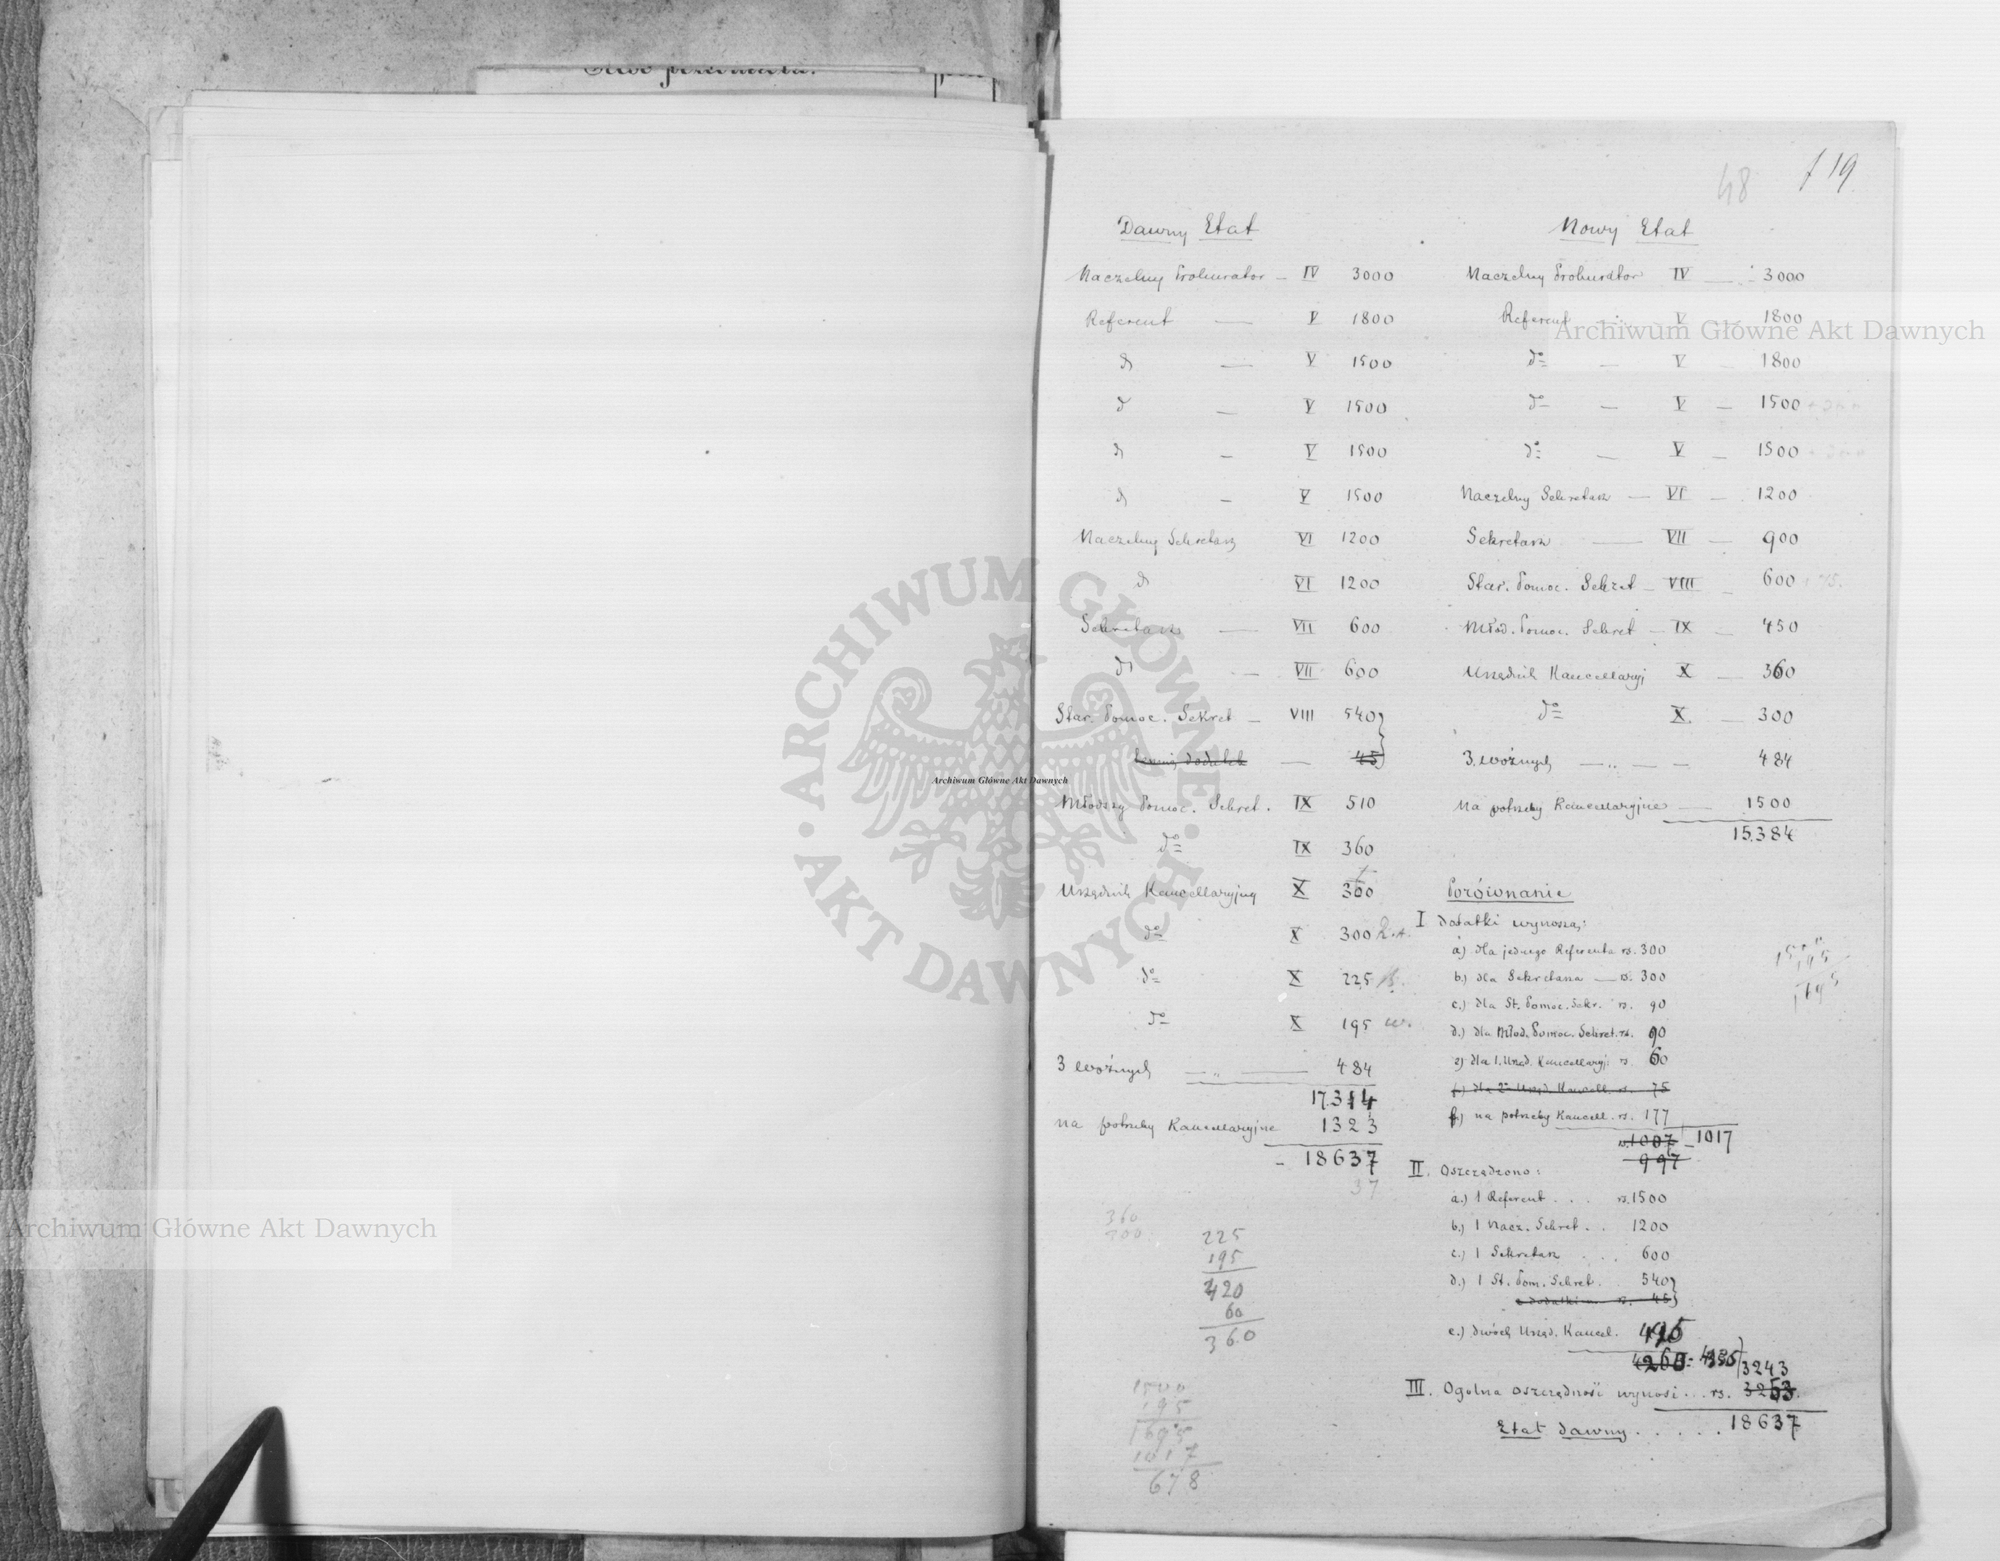 48 119
Dawny Etat
Naczelny Prokurator – IV 3000
Referent — V 1800
do — V 1500
do — V 1500
do – V 1500
do – V 1500
Naczelny Sekretarz VI 1200
do VI 1200
Sekretarz — VII 600
do — VII 600
Star. Pomoc. Sekret – VIII 540
dodatek — 45
Młodszy Pomoc. Sekret. IX 510
do IX 360
Urzędnik Kancellaryjny X 360
do X 300
do X 225
do X 195
3 woźnych — „ — 484
17.314
na potrzeby Kancellaryjne 1323
– 18637
37
360
225
195
420
60
360
1500
195
1695
1017
678
Nowy Etat
Naczelny Prokurator IV — 3000
Referent — V — 1800
do — V – 1800
do — V — 1500
do — V – 1500
Naczelny Sekretarz — VI – 1200
Sekretarz — VII — 900
Star. Pomoc. Sekret – VIII – 600 75.
Młod. Pomoc. Sekret – IX – 450
Urzędnik Kancellaryj X — 360
do X. — 300
3 woźnych — „ — – 484
Na potrzeby Kancellaryjne — 1500
15.384
Porównanie
I dodatki wynoszą:
a) dla jednego Referenta rs. 300
b) dla Sekretarza — rs. 300
c.) dla St. Pomoc. Sekr. rs. 90
d.) dla Młod. Pomoc. Sekret. rs. 90
e) dla 1. Urzęd. Kancellaryj: rs. 60
f.) dla 2o Urzęd. Kancell. rs. 75
f.) na potrzeby Kancell. rs. 177
rs. 1007 – 1017
997
II. Oszczędzono:
a.) 1 Referent . . . rs. 1500
b.) 1 Nacz. Sekret . . 1200
c.) 1 Sekretarz . . . 600
d.) 1 St. Pom. Sekret. . 540
z dodatkiem rs. 45
e.) dwóch Urzęd. Kancel.
4260 3243
III. Ogolna oszczędność wynosi . . . rs. 3253.
Etat dawny . . . . . 18637
Archiwum Główne Akt Dawnych
Archiwum Główne Akt Dawnych
Archiwum Główne Akt Dawnych
ARCHIWUM GŁÓWNE · AKT DAWNYCH ·